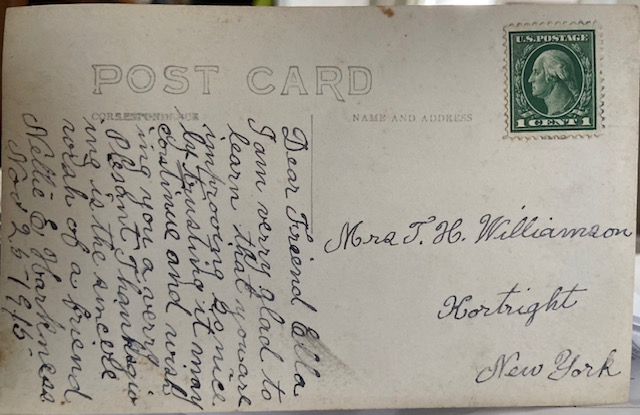 POST CARD
CORRESPONDENCE
NAME AND ADDRESS
U.S. POSTAGE
1 CENT 1
Dear Friend Ella
I am verry glad to
learn that you are
improoving so nice
ly trusting it may
continue and wish
ing you a verry
Plesant Thanksgiv
ing is the sincere
wish of a friend
Nettie E Harkness
Nov 25-1915-
Mrs T. H. Williamson
Kortright
New York